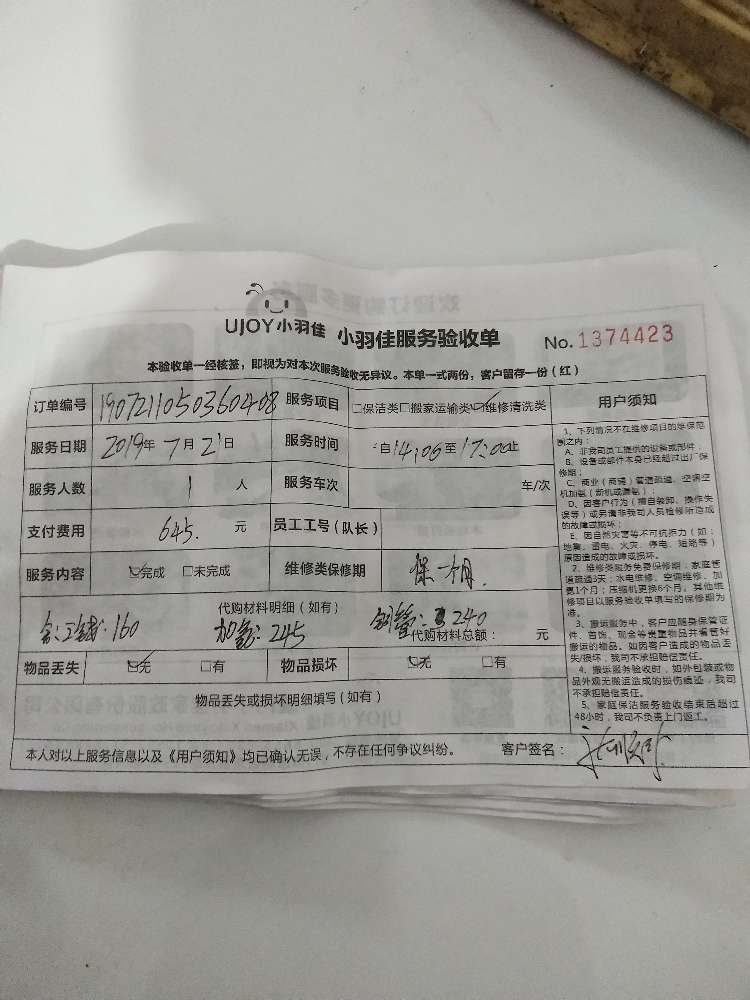 UJOY小羽佳 小羽佳服务验收单 No. 1374423
本验收单一经核签，即视为对本次服务验收无异议。本单一式两份，客户留存一份（红）
订单编号 190721105036040408 服务项目 □保洁类□搬家运输类☑维修清洗类 用户须知
服务日期 2019年7月21日 服务时间 自14:06至17:00止
服务人数 1 人 服务车次 车/次
支付费用 645. 元 员工工号（队长）
服务内容 ☑完成 □未完成 维修类保修期 保一个月.
代购材料明细（如有）
160 加氟：245 240
代购材料总额： 元
物品丢失 ☑无 □有 物品损坏 ☑无 □有
物品丢失或损坏明细填写（如有）
本人对以上服务信息以及《用户须知》均已确认无误，不存在任何争议纠纷。 客户签名：
1、下列情况不在维修项目的维保范
围之内：
A、非我司员工提供的设备或部件；
B、设备或部件本身已经超过出厂保
修期；
C、商业（商铺）管道疏通、空调空
机加氨（新机或漏氨）；
D、因客户行为（擅自装卸、操作失
误等）或另请非我司人员检修所造成
的故障或损坏；
E、因自然灾害等不可抗拒力（如：
地震、雷电、火灾、停电、短路等）
原因造成的故障或损坏。
2、维修类服务免费保修期：家庭管
道疏通3天；水电维修、空调维修、加
氨1个月；压缩机更换6个月。其他维
修项目以服务验收单填写的保修期为
准。
3、搬运服务中，客户应随身保管证
件、首饰、现金等贵重物品并看管好
搬运的物品。如因客户造成的物品丢
失/损坏，我司不承担赔偿责任。
4、搬运服务验收时，如外包装或物
品外观无搬运造成的损伤痕迹，我司
不承担赔偿责任。
5、家庭保洁服务验收结束后超过
48小时，我司不负责上门返工。